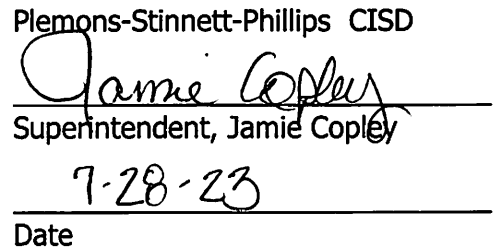 Plemons-Stinnett-Phillips CISD
Jamie Copley
Superintendent, Jamie Copley
7-28-23
Date